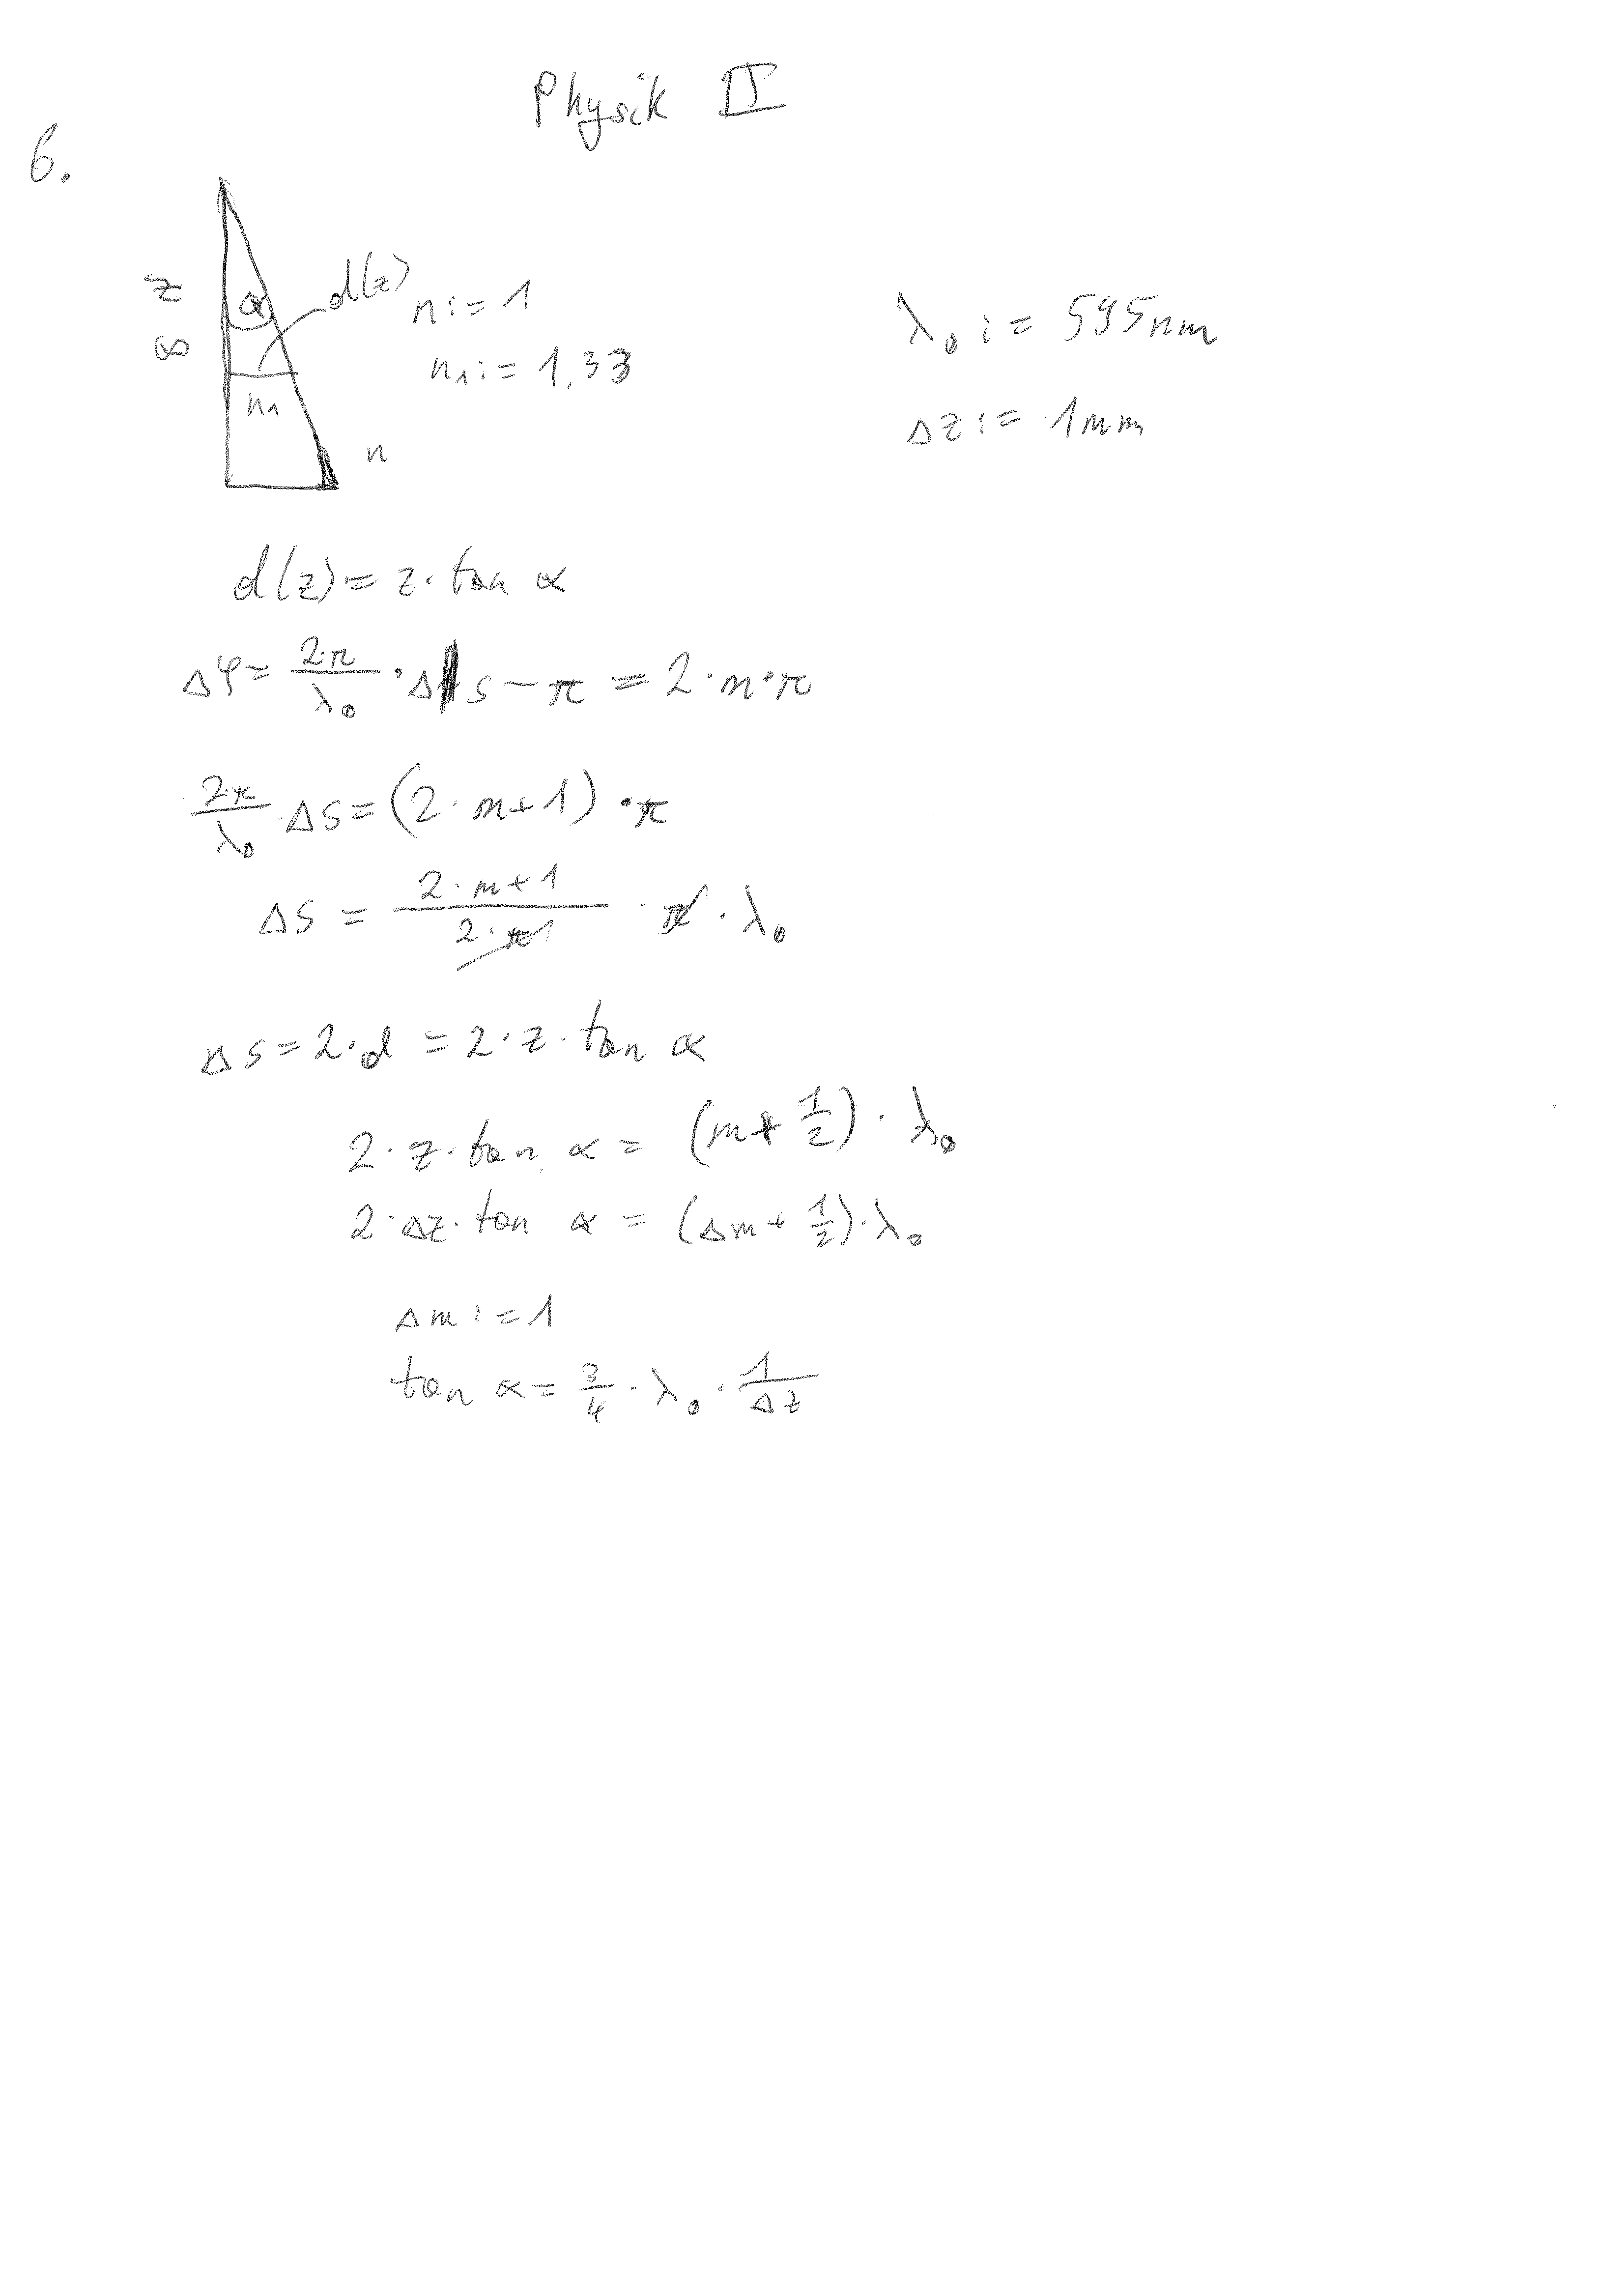 Physik II
6.
z
d(z)
α
n := 1
n₁ := 1,33
λ₀ := 595nm
Δz := 1mm
n₁
n
d(z) = z · tan α
Δφ = 2·π/λ₀ · Δs − π = 2·m·π
2·π/λ₀ · Δs = (2·m+1) · π
Δs = (2·m+1)/(2·π) · π · λ₀
Δs = 2·d = 2·z·tan α
2·z·tan α = (m + 1/2) · λ₀
2·Δz·tan α = (Δm + 1/2)·λ₀
Δm := 1
tan α = 3/4 · λ₀ · 1/Δz